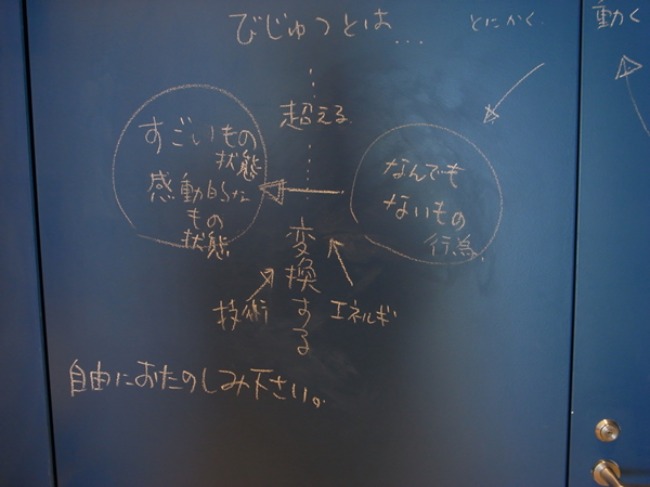 びじゅつとは...
とにかく
動く
超える
すごいもの
状態
感動的な
もの
状態
なんでも
ないもの
行為
変換する
技術
エネルギ
自由におたのしみ下さい。